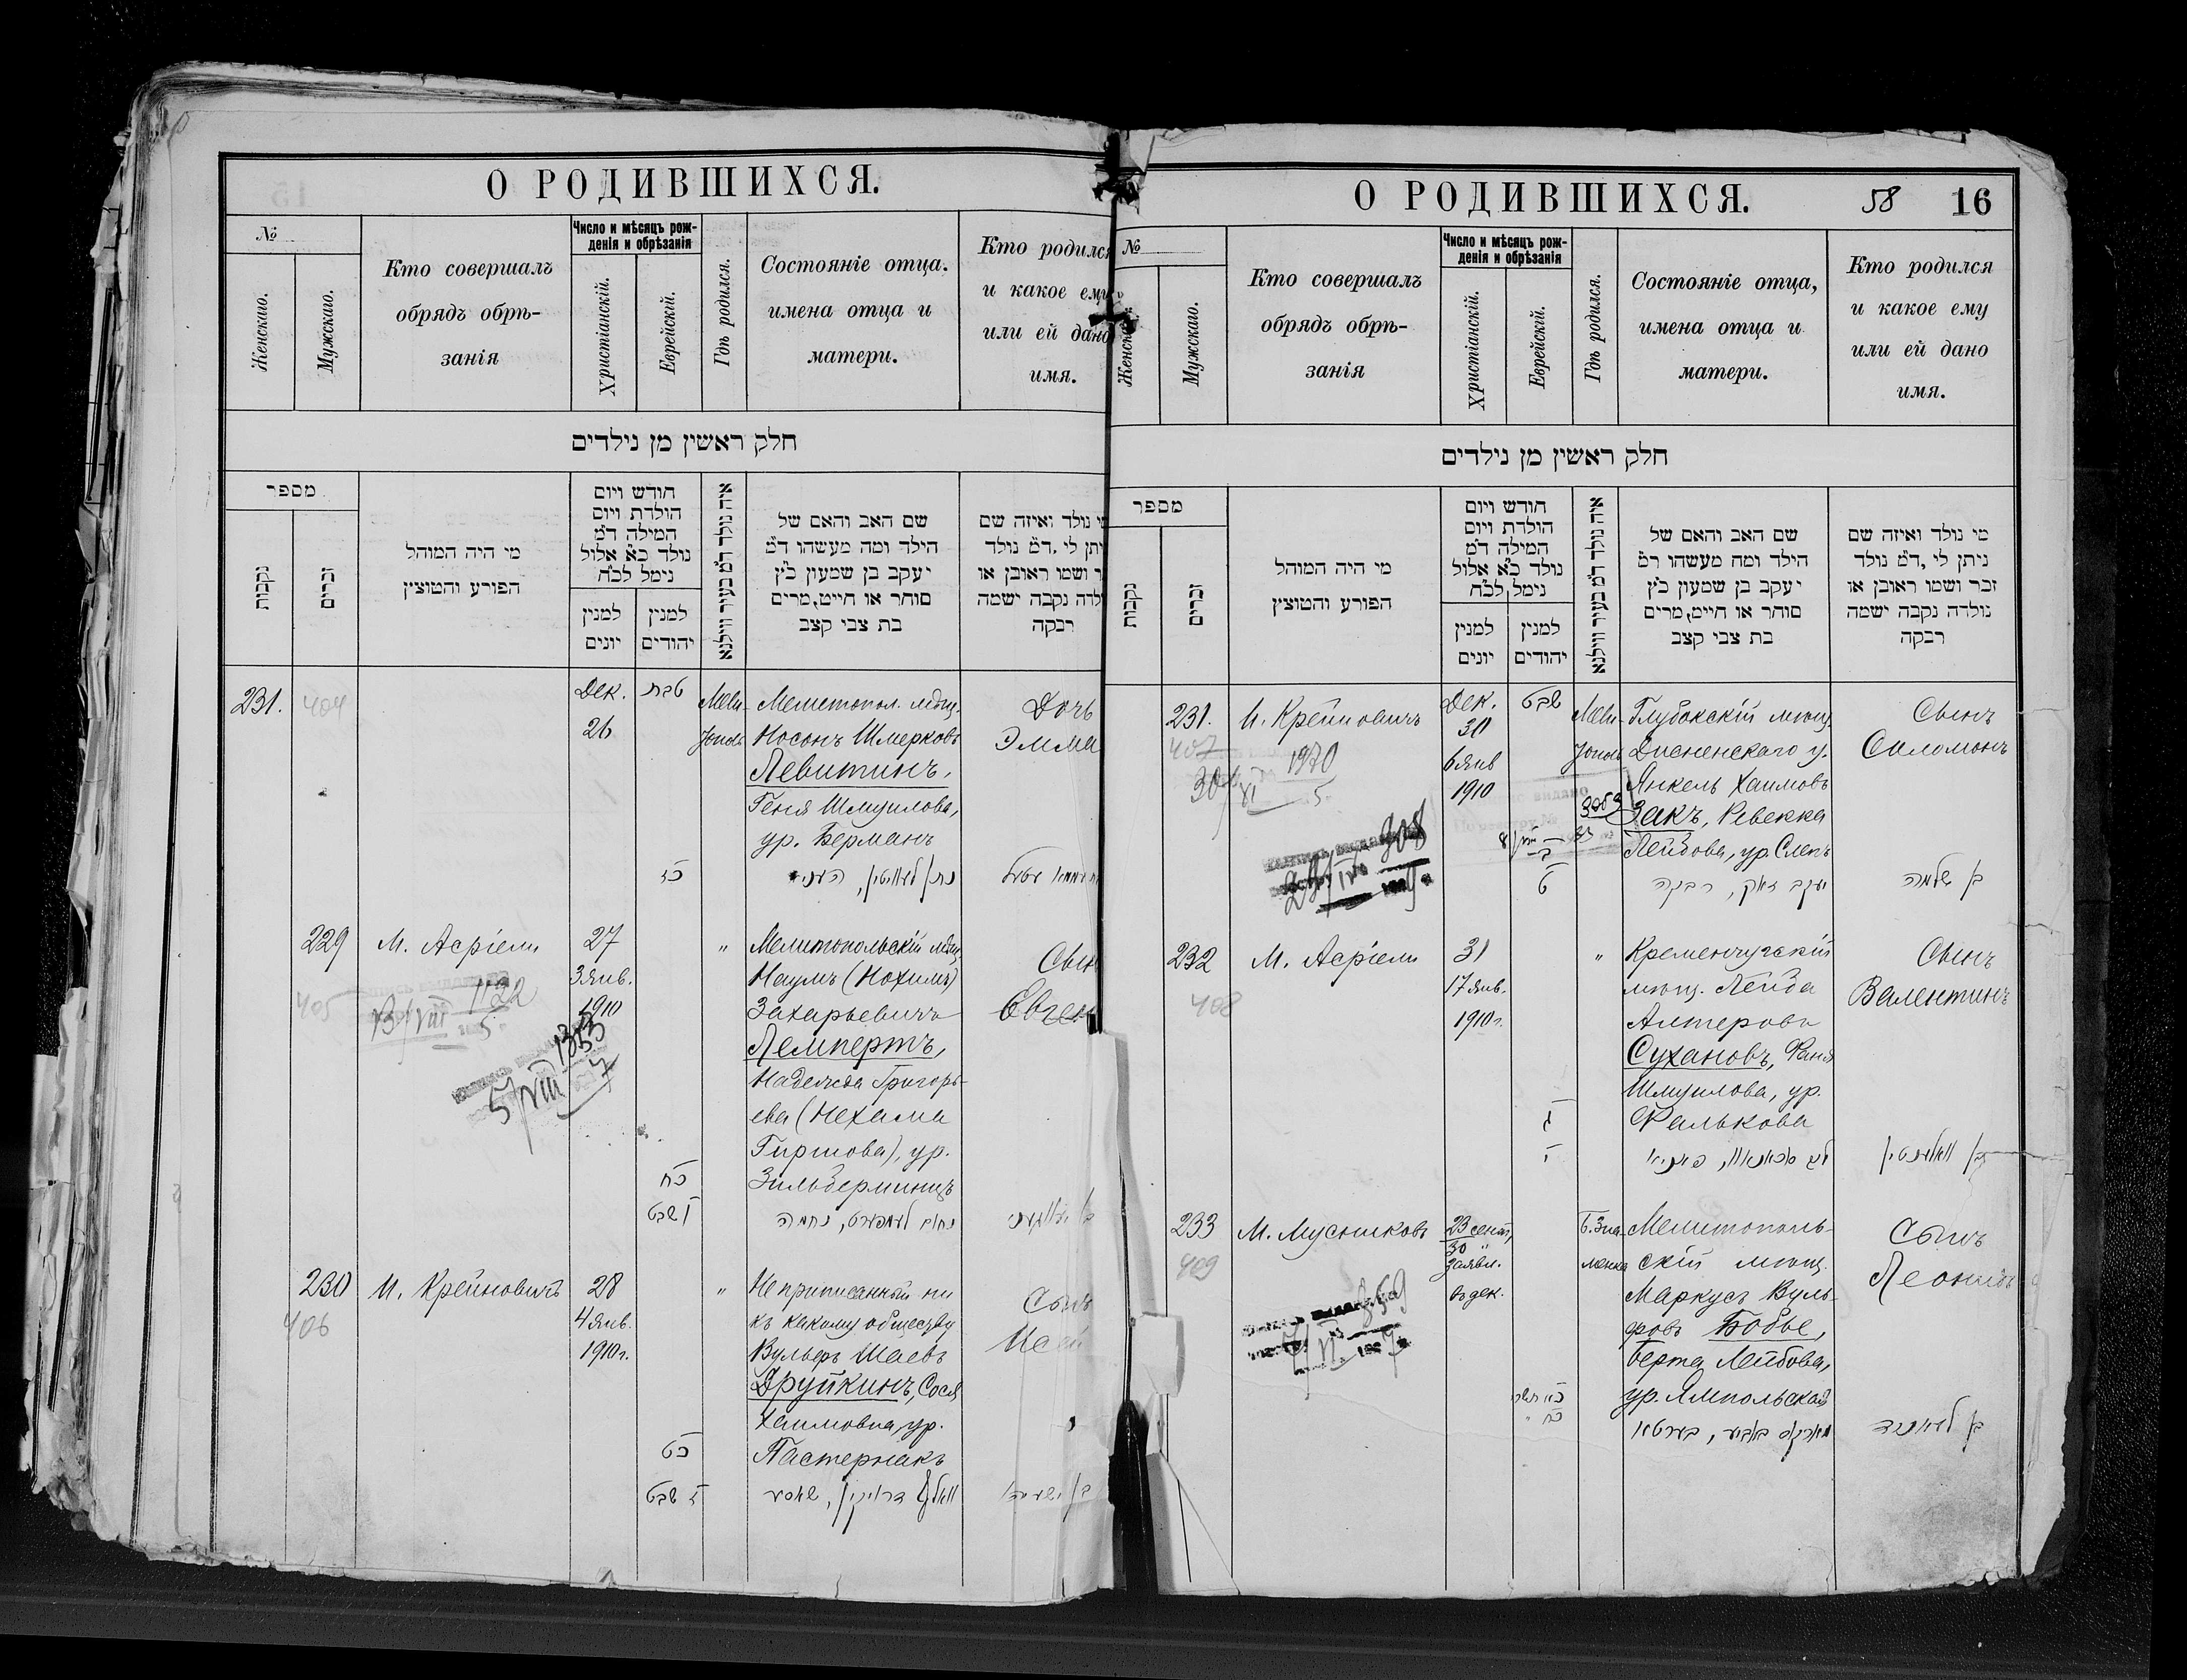 О РОДИВШИХСЯ.
№
Женскаго.
Мужскаго.
Кто совершалъ
обрядъ обрѣ-
занія
Число и мѣсяцъ рож-
денія и обрѣзанія
Христіанскій.
Еврейскій.
Гдѣ родился.
Состояніе отца.
имена отца и
матери.
Кто родился
и какое ему
или ей дано
имя.
חלק ראשין מן נילדים
מספר
נקבות
זכרים
מי היה המוהל
הפורע והמוצץ
חודש ויום
הולדת ויום
המילה ד״מ
נולד כ״א אלול
נימל לכ״ח
למנין
יונים
למנין
יהודים
איה נולד ד״מ בעיר ווילנא
שם האב והאם של
הילד ומה מעשהו ד״מ
יעקב בן שמעון כ״ץ
סוחר או חייט, מרים
בת צבי קצב
נולד ואיזה שם
יתן לי, ד״מ נולד
ושמו ראובן או
ולדה נקבה ישמה
רבקה
231.
404
Дек.
26
טבת
Мели-
тополь
Мелитопол. мѣщ.
Носонъ Шмерковъ
Левитинъ,
Геня Шмуилова,
ур. Берманъ
Дочь
Эмма
229
405
М. Асріели
27
3 янв.
1910
"
Мелитопольскій мѣщ.
Наумъ (Нохимъ)
Захарьевичъ
Лемпертъ,
Надежда Григорь-
ева (Нехама
Гиршова), ур.
Зильберминцъ
Сын
Евген
13/VIII 1132
5/VIII 1353
כח
שבט
נחום לעמפערט, נחמה
230
406
И. Крейновичъ
28
4 янв.
1910 г.
"
Не приписанный ни
къ какому обществу
Вульфъ Шаевъ
Друйкинъ, Сося
Хаимовна, ур.
Пастернакъ
Сынъ
Исай
כט
שבט
О РОДИВШИХСЯ.
58
16
№
Женскаго.
Мужскаго.
Кто совершалъ
обрядъ обрѣ-
занія
Число и мѣсяцъ рож-
денія и обрѣзанія
Христіанскій.
Еврейскій.
Гдѣ родился.
Состояніе отца,
имена отца и
матери.
Кто родился
и какое ему
или ей дано
имя.
חלק ראשין מן נילדים
מספר
נקבות
זכרים
מי היה המוהל
הפורע והמוצץ
חודש ויום
הולדת ויום
המילה ד״מ
נולד כ״א אלול
נימל לכ״ח
למנין
יונים
למנין
יהודים
איה נולד ד״מ בעיר ווילנא
שם האב והאם של
הילד ומה מעשהו ד״מ
יעקב בן שמעון כ״ץ
סוחר או חייט, מרים
בת צבי קצב
מי נולד ואיזה שם
ניתן לי, ד״מ נולד
זכר ושמו ראובן או
נולדה נקבה ישמה
רבקה
231.
407
И. Крейновичъ
Дек.
30
6 янв
1910
שבט
Мели-
тополь
Глубокскій мѣщ.
Дисненскаго у.
Янкель Хаимовъ
Закъ, Ревекка
Лейбова, ур. Слепъ
Сынъ
Соломонъ
1970
308
ט
יעקב זאק, רבקה
בן שלמה
232
408
М. Асріели
31
17 янв.
1910 г.
"
Кременчугскій
мѣщ. Лейба
Алтеровъ
Сухановъ, Фаня
Шмуилова, ур.
Фалькова
Сынъ
Валентинъ
233
409
М. Мусниковъ
23 сент,
30 "
Заявл.
въ дек.
Б. Зна-
менка
Мелитополь-
скій мѣщ.
Маркусъ Вуль-
фовъ Бобье,
Берта Лейбова,
ур. Ямпольская
Сынъ
Леонидъ